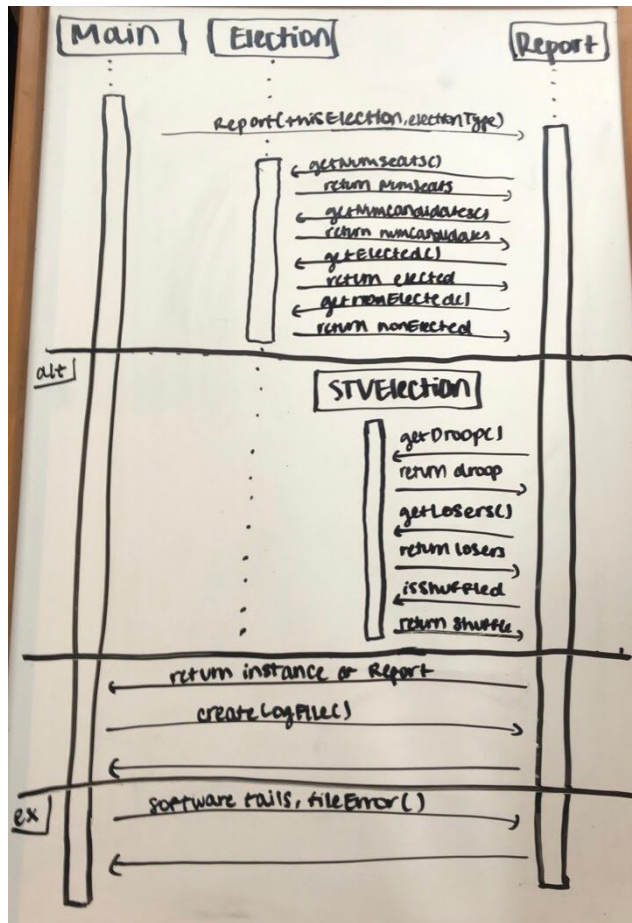 Main
Election
Report
Report(thisElection, electionType)
getNumSeats()
return NumSeats
getNumCandidates()
return numCandidates
getElected()
return elected
getnonElected()
return nonElected
alt
STVElection
getDroop()
return droop
getLosers()
return losers
isShuffled
return shuffle
return instance of Report
createLogFile()
ex
software fails, fileError()